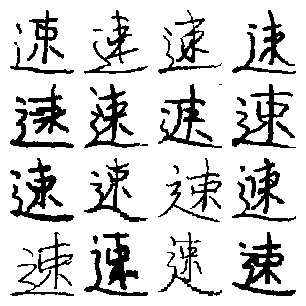 速速速速
速速速速
速速速速
速速速速